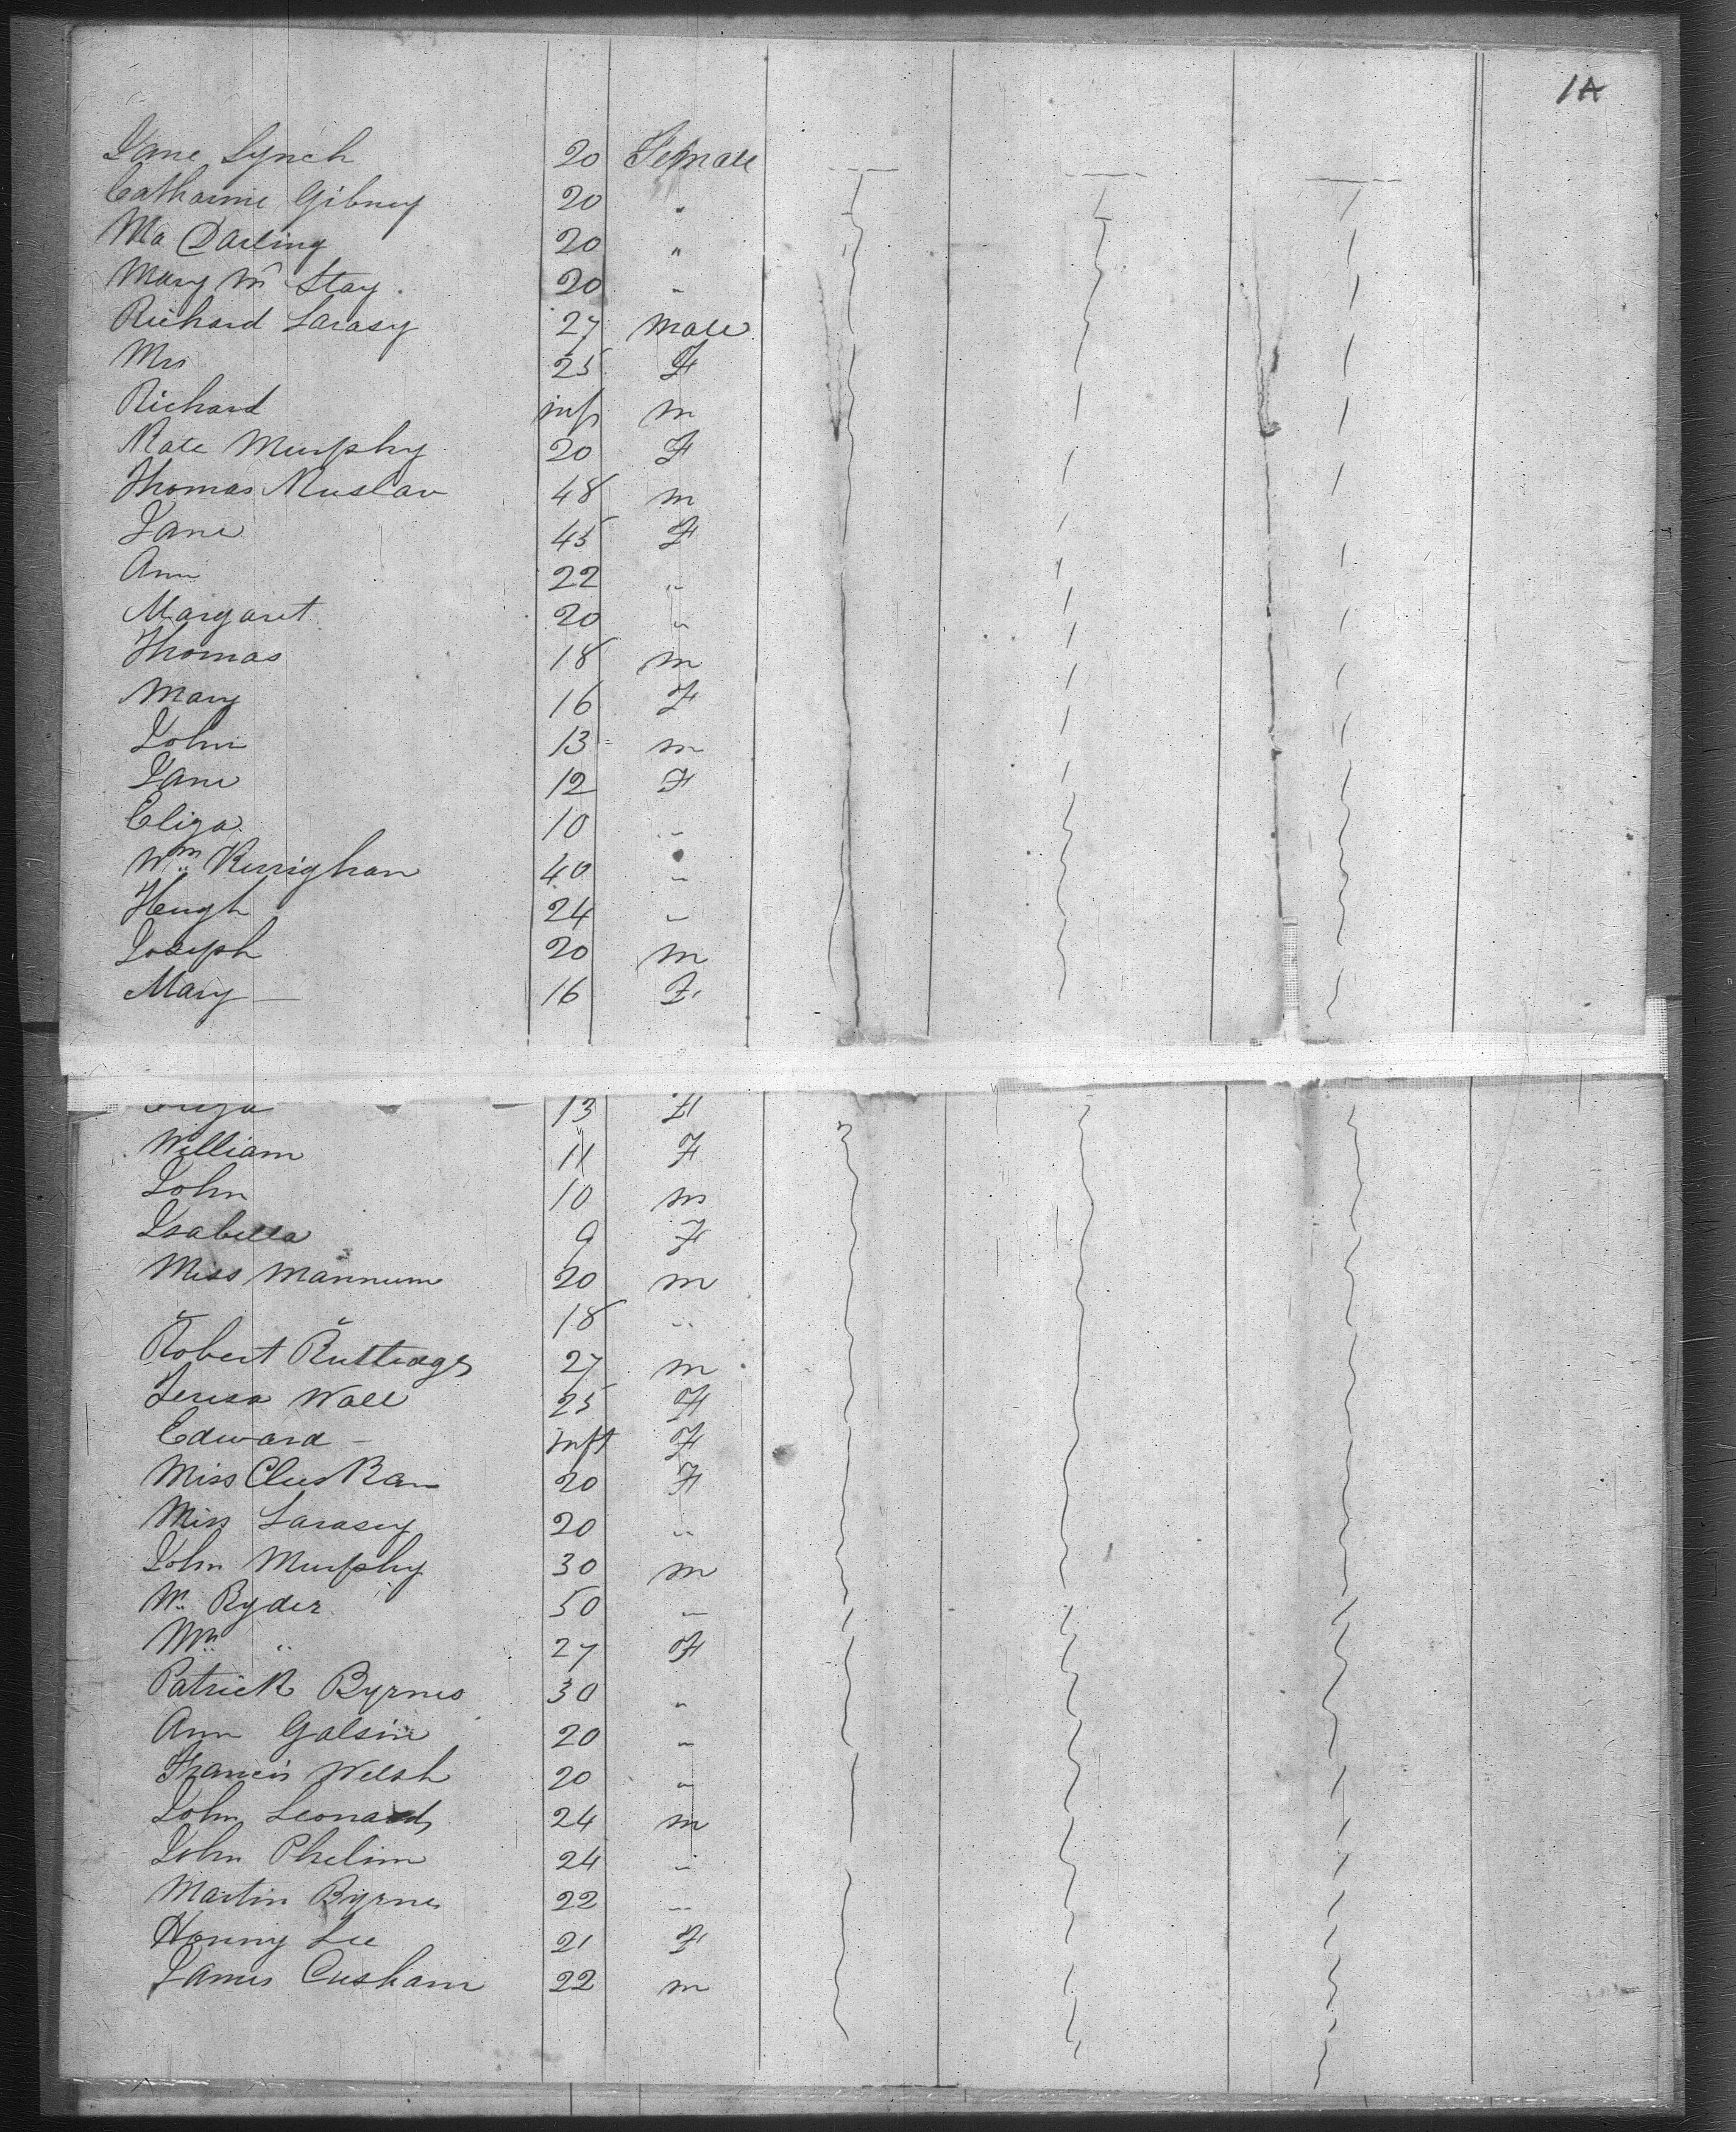 1A
Jane Lynch 20 Female
Catharine Gibney 20 "
Ma Darling 20 "
Mary Mc Stay 20 "
Richard Larasy 27 Male
Mrs 25 F
Richard inft m
Kate Murphy 20 F
Thomas Muslaw 48 m
Jane 45 F
Ann 22 "
Margaret 20 "
Thomas 18 m
Mary 16 F
John 13 m
Jane 12 F
Eliza 10 "
Wm Kerrighan 40 "
Hugh 24 "
Joseph 20 m
Mary — 16 F
Eliza 13 F
William 11 F
John 10 m
Isabella 9 F
Miss Mannum 20 m
" " 18 "
Robert Rutledge 27 m
Teresa Wall 25 F
Edward — inft F
Miss Cluskan 20 F
Miss Larasy 20 "
John Murphy 30 m
Mr Ryder 50 "
Mrs " 27 F
Patrick Byrnes 30 "
Ann Galsin 20 "
Francis Welsh 20 "
John Leonard 24 m
John Phelim 24 "
Martin Byrnes 22 "
Honny Lee 21 F
James Cusham 22 m